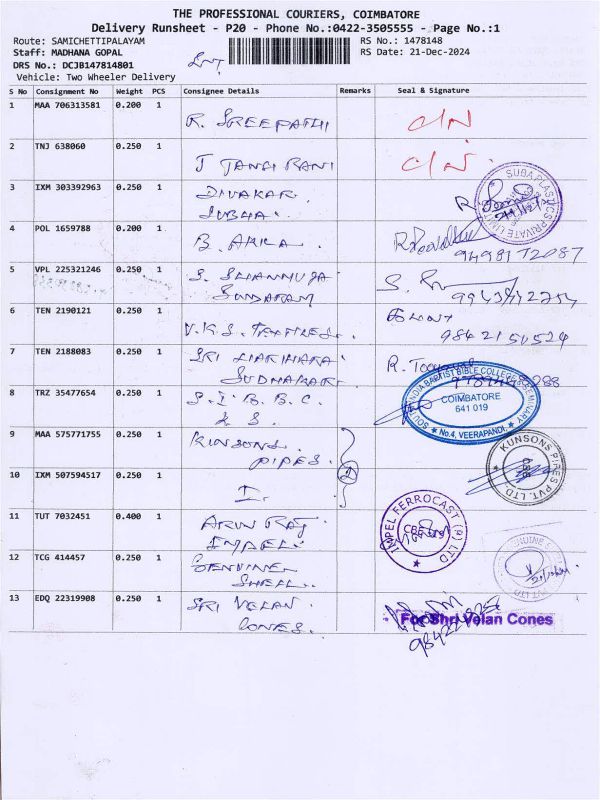 THE PROFESSIONAL COURIERS, COIMBATORE
Delivery Runsheet - P20 - Phone No.:0422-3505555 - Page No.:1
Route: SAMICHETTIPALAYAM RS No.: 1478148
Staff: MADHANA GOPAL RS Date: 21-Dec-2024
DRS No.: DCJB147814801
Vehicle: Two Wheeler Delivery
S No Consignment No Weight PCS Consignee Details Remarks Seal & Signature
1 MAA 706313581 0.200 1
R. SREEPATHI C/N
2 TNJ 638060 0.250 1
J JANCI RANI C/N
3 IXM 303392963 0.250 1 DIVAKAR
SUBHA. SUBA PLASTICS PRIVATE LIMITED
4 POL 1659788 0.200 1
B. 9498172087
5 VPL 225321246 0.250 1 S. SHANMUGA
SUNDARAM
6 TEN 2190121 0.250 1
V.K.S. TEXTILES. 9842151524
7 TEN 2188083 0.250 1 SRI HARIHARA
SUDHAKAR R.
8 TRZ 35477654 0.250 1 S. I. B. B. C.
& S. SOUTH INDIA BAPTIST BIBLE COLLEGE & SEMINARY
COIMBATORE
641 019
No.4, VEERAPANDI.
9 MAA 575771755 0.250 1 KUNSONS
PIPES. 2 KUNSONS PIPES PVT. LTD.
10 IXM 507594517 0.250 1
11 TUT 7032451 0.400 1 ARUN RAJ
IMPEL. IMPEL FERROCAST (P) LTD
12 TCG 414457 0.250 1 GENUINE
SHELL.
13 EDQ 22319908 0.250 1 SRI VELAN
CONES. For Shri Velan Cones